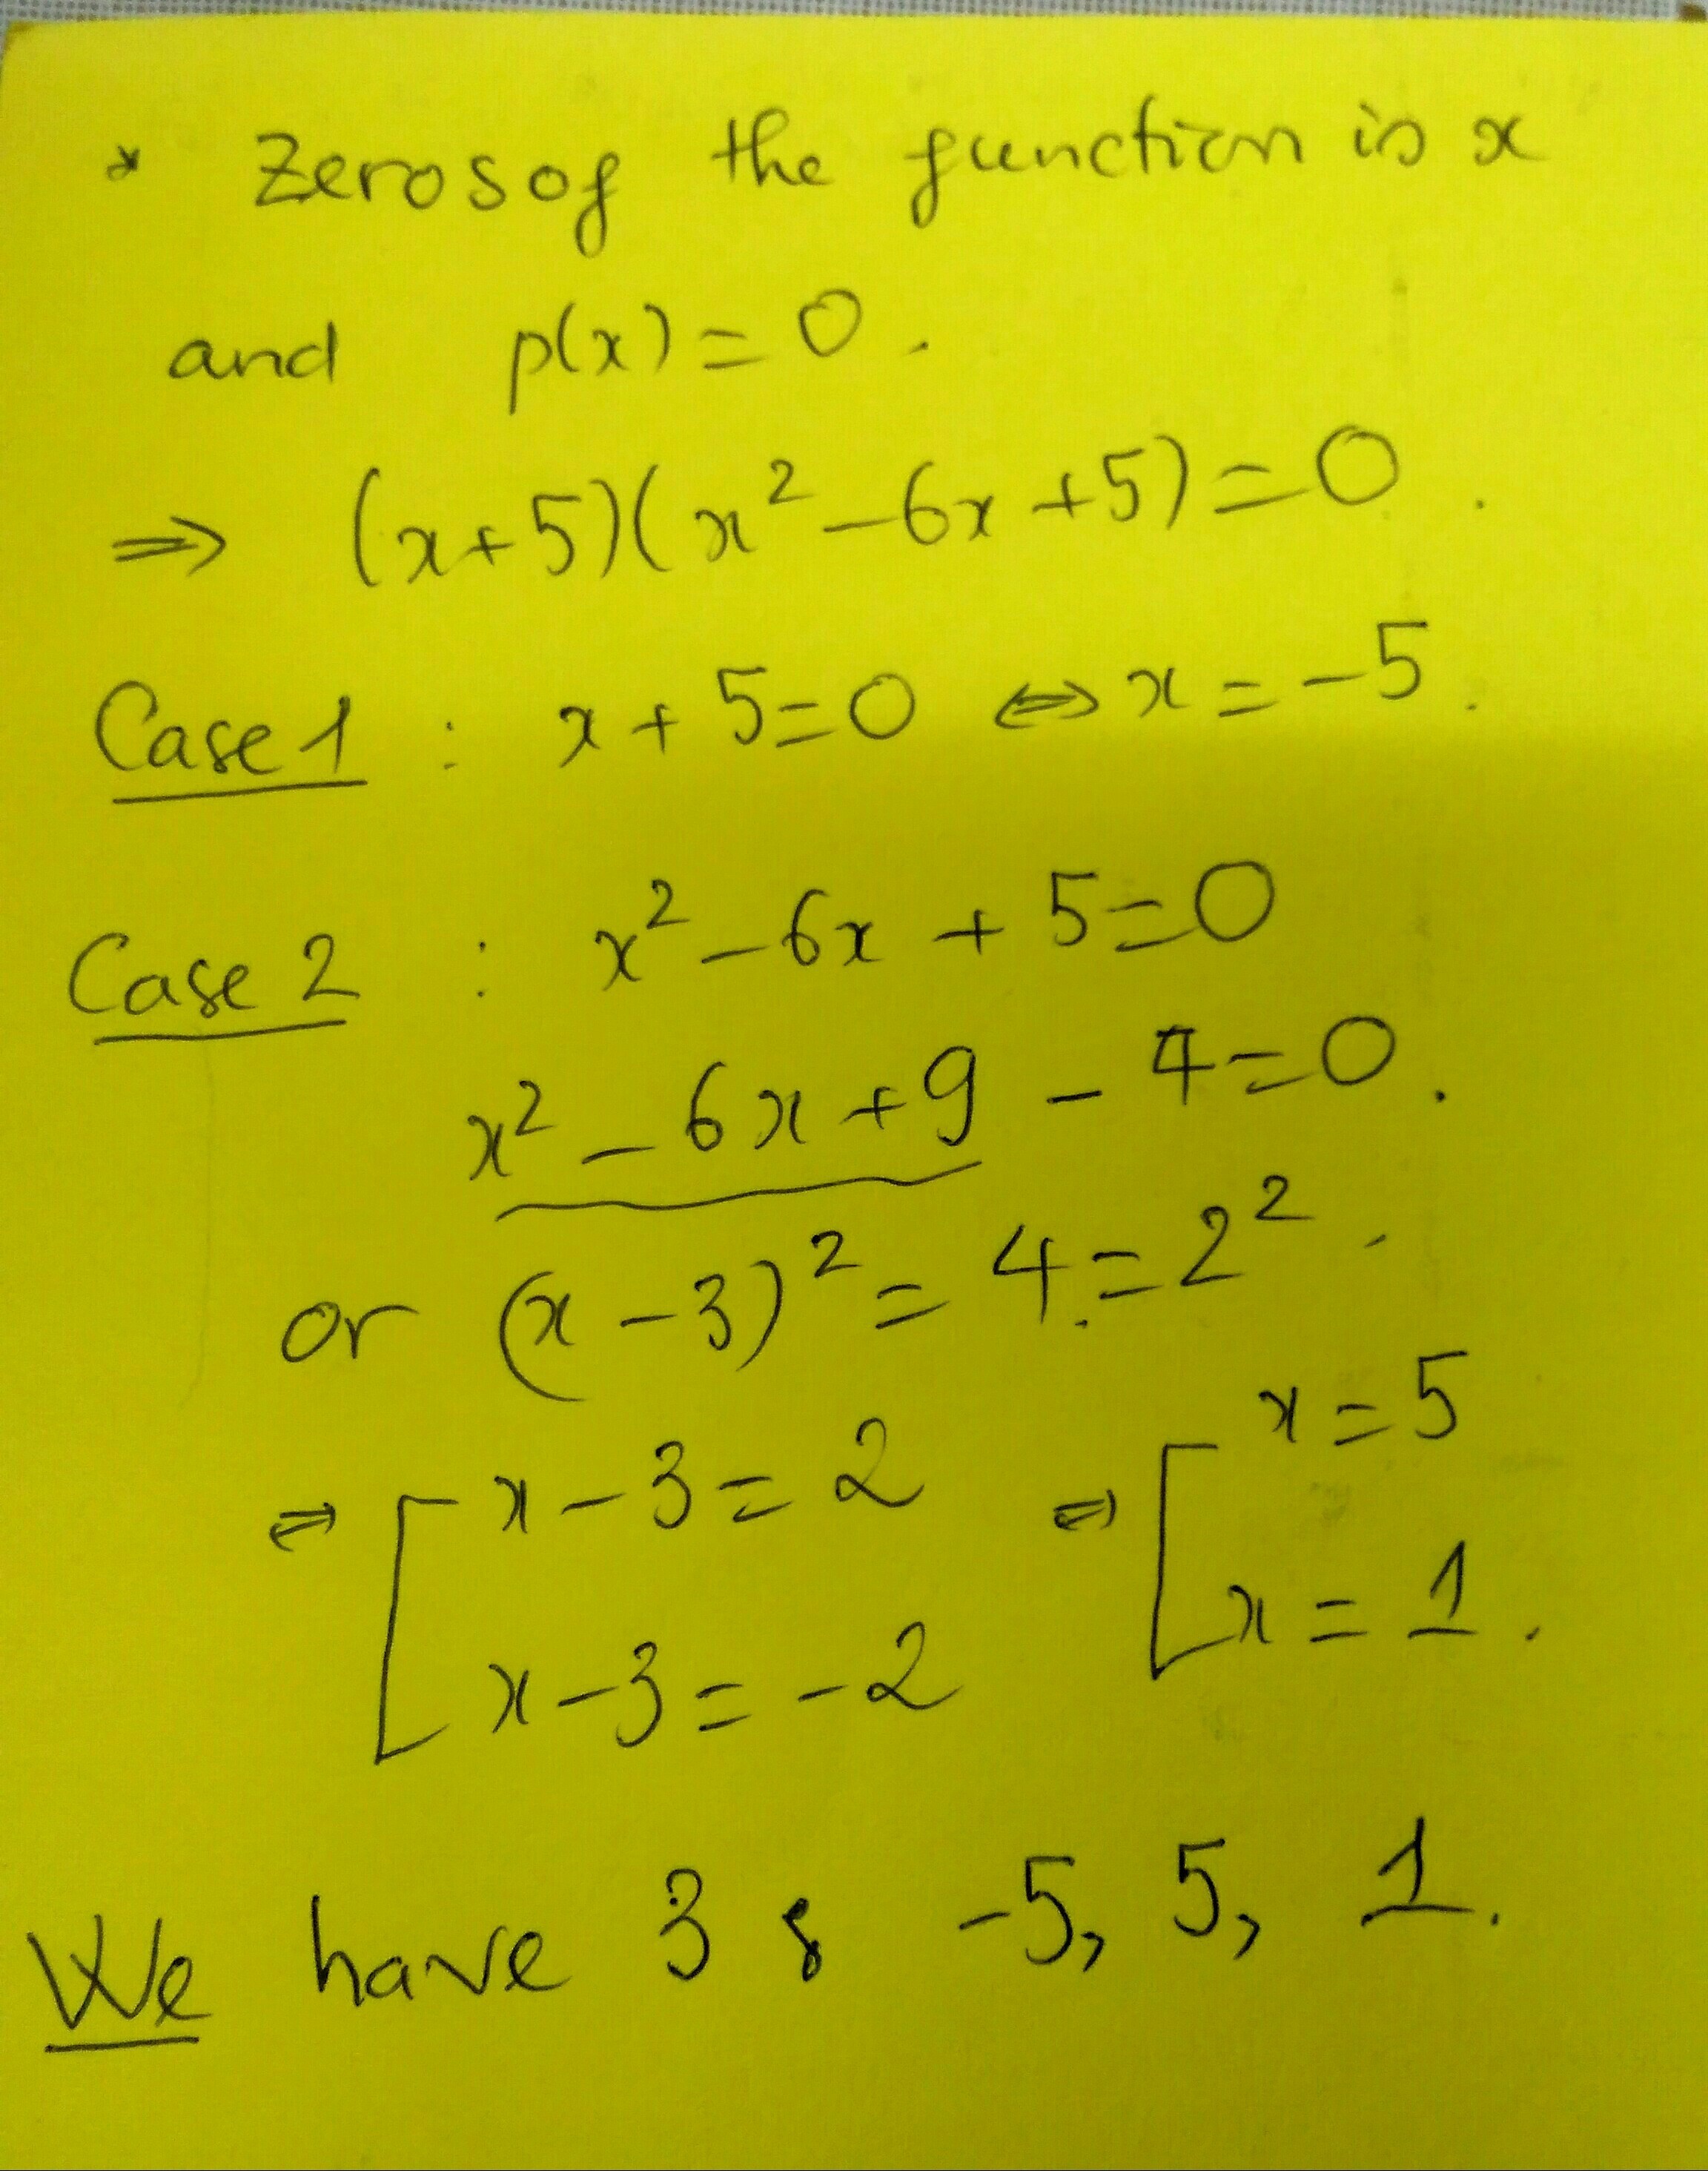 * Zeros of the function is x
and p(x) = 0.
⇒ (x+5)(x² - 6x + 5) = 0.
Case 1 : x + 5 = 0 ⇔ x = -5.
Case 2 : x² - 6x + 5 = 0
x² - 6x + 9 - 4 = 0.
or (x - 3)² = 4 = 2².
⇔ [ x - 3 = 2 ⇔ [ x = 5
x - 3 = -2 x = 1.
We have 3 : -5, 5, 1.